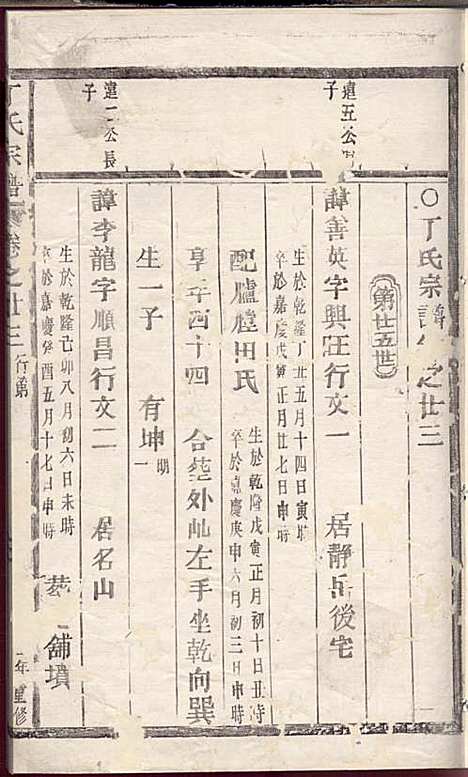 〇丁氏宗譜 之廿三
第廿五世
違五公 子
諱善英字興 行文一 居靜岳後宅
生於乾隆丁丑五月十四日寅時
卒於嘉慶戊寅正月廿七日申時
配臚膛田氏
生於乾隆戊寅正月初十日丑時
卒於嘉慶庚申六月初三日申時
享年四十四 合塟外 左手坐乾向巽
生一子 有坤 明一
違二公長子
諱李龍字順昌行文二 居名山
生於乾隆己卯八月初六日未時
卒於嘉慶癸酉五月十七日申時
塟 舖墳
丁氏宗譜 卷之廿三 行第 年重修